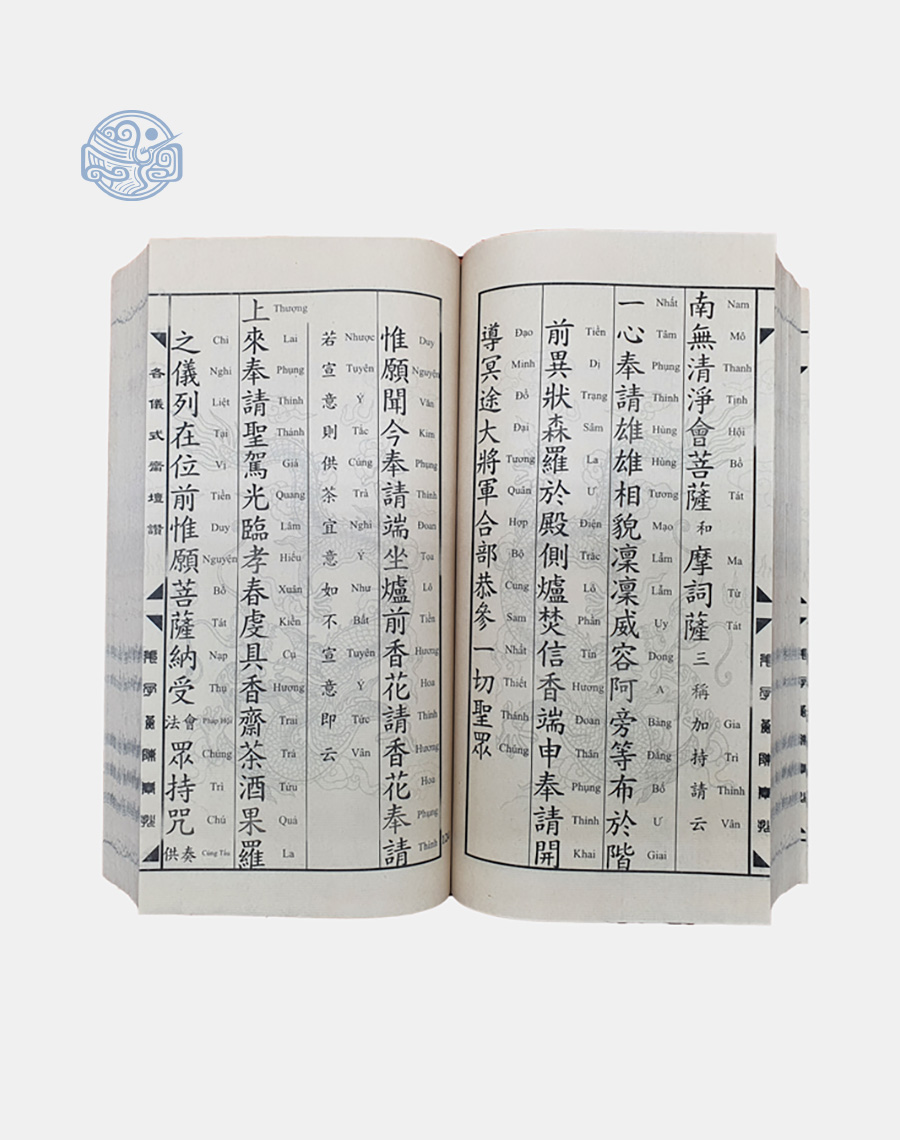 南無清淨會菩薩和摩詞薩三稱加持請云
Nam Mô Thanh Tịnh Hội Bồ Tát Ma Từ Tát Gia Trì Thỉnh Vân
一心奉請雄雄相貌凜凜威容阿旁等布於階
Nhất Tâm Phụng Thỉnh Hùng Hùng Tương Mạo Lẫm Lẫm Uy Dong A Bàng Đẳng Bố Ư Giai
前異狀森羅於殿側爐焚信香端申奉請開
Tiền Dị Trạng Sâm La Ư Điện Trắc Lô Phần Tín Hương Đoan Thân Phụng Thỉnh Khai
導冥途大將軍合部恭參一切聖眾
Đạo Minh Đồ Đại Tương Quân Hợp Bộ Cung Sam Nhất Thiết Thánh Chúng
惟願聞今奉請端坐爐前香花請香花奉請
Duy Nguyện Văn Kim Phụng Thỉnh Đoan Tọa Lô Tiền Hương Hoa Thỉnh Hương Hoa Phụng Thỉnh
若宣意則供茶宜意如不宣意即云
Nhược Tuyên Ý Tắc Cúng Trà Nghi Ý Như Bất Tuyên Ý Tức Vân
上來奉請聖駕光臨孝春虔具香齋茶酒果羅
Thượng Lai Phụng Thỉnh Thánh Giá Quang Lâm Hiếu Xuân Kiền Cụ Hương Trai Trà Tửu Quả La
之儀列在位前惟願菩薩納受法會眾持咒供奏
Chi Nghi Liệt Tại Vị Tiền Duy Nguyện Bồ Tát Nạp Thụ Pháp Hội Chúng Trì Chú Cúng Tấu
各儀式齋壇讚